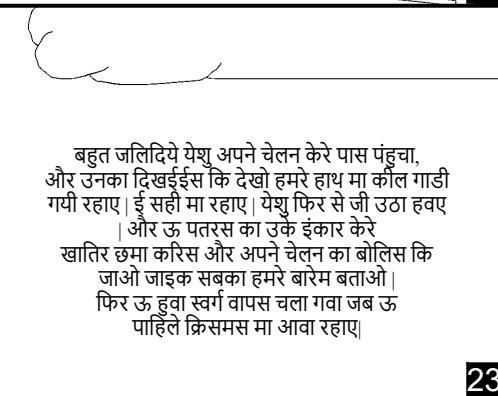 बहुत जलिदिये येशु अपने चेलन केरे पास पंहुचा,
और उनका दिखईईस कि देखो हमरे हाथ मा कील गाडी
गयी रहाए | ई सही मा रहाए | येशु फिर से जी उठा हवए
| और ऊ पतरस का उके इंकार केरे
खातिर छमा करिस और अपने चेलन का बोलिस कि
जाओ जाइक सबका हमरे बारेम बताओ |
फिर ऊ हुवा स्वर्ग वापस चला गवा जब ऊ
पाहिले क्रिसमस मा आवा रहाए|
23